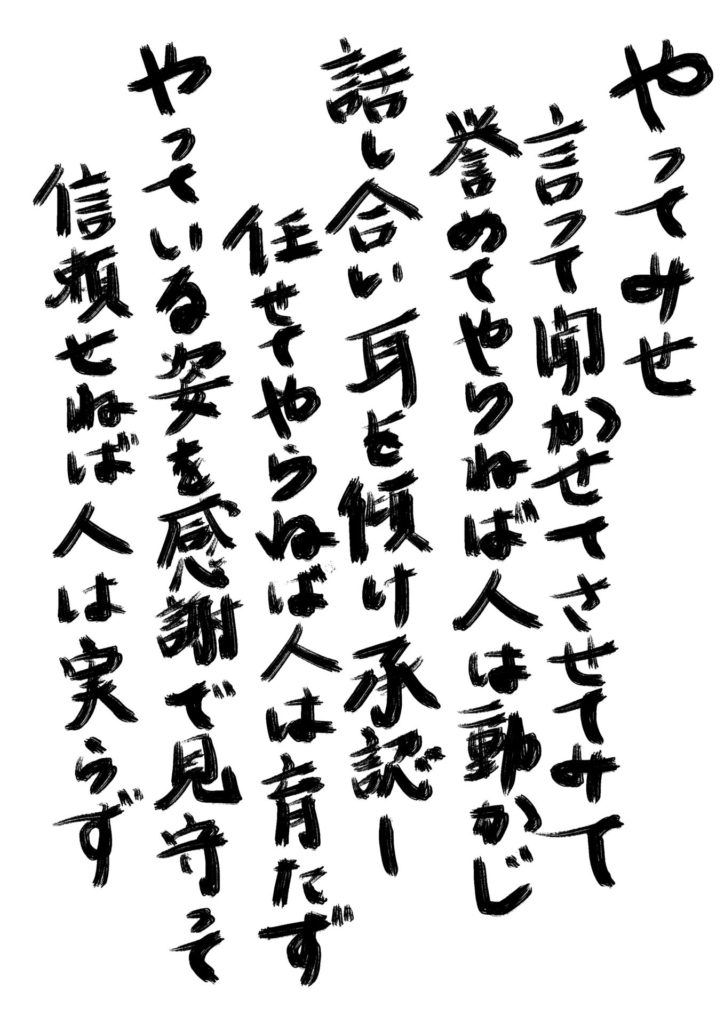 やってみせ
言って聞かせてさせてみて
誉めてやりねば人は動かじ
話し合い耳を傾け承認し
任せてやらねば人は育たず
やっている姿を感謝で見守って
信頼せねば人は実らず